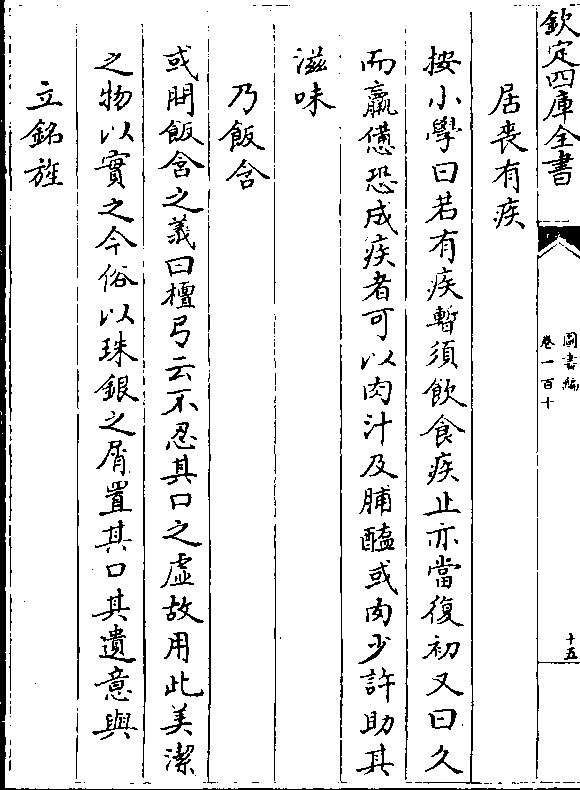 欽定四庫全書
圖書編
卷一百十
十五
居喪有疾
按小學曰若有疾暫須飲食疾止亦當復初又曰久
而羸憊恐成疾者可以肉汁及脯醢或肉少許助其
滋味
乃飯含
或問飯含之義曰檀弓云不忍其口之虛故用此美潔
之物以實之今俗以珠銀之屑置其口其遺意與
立銘旌